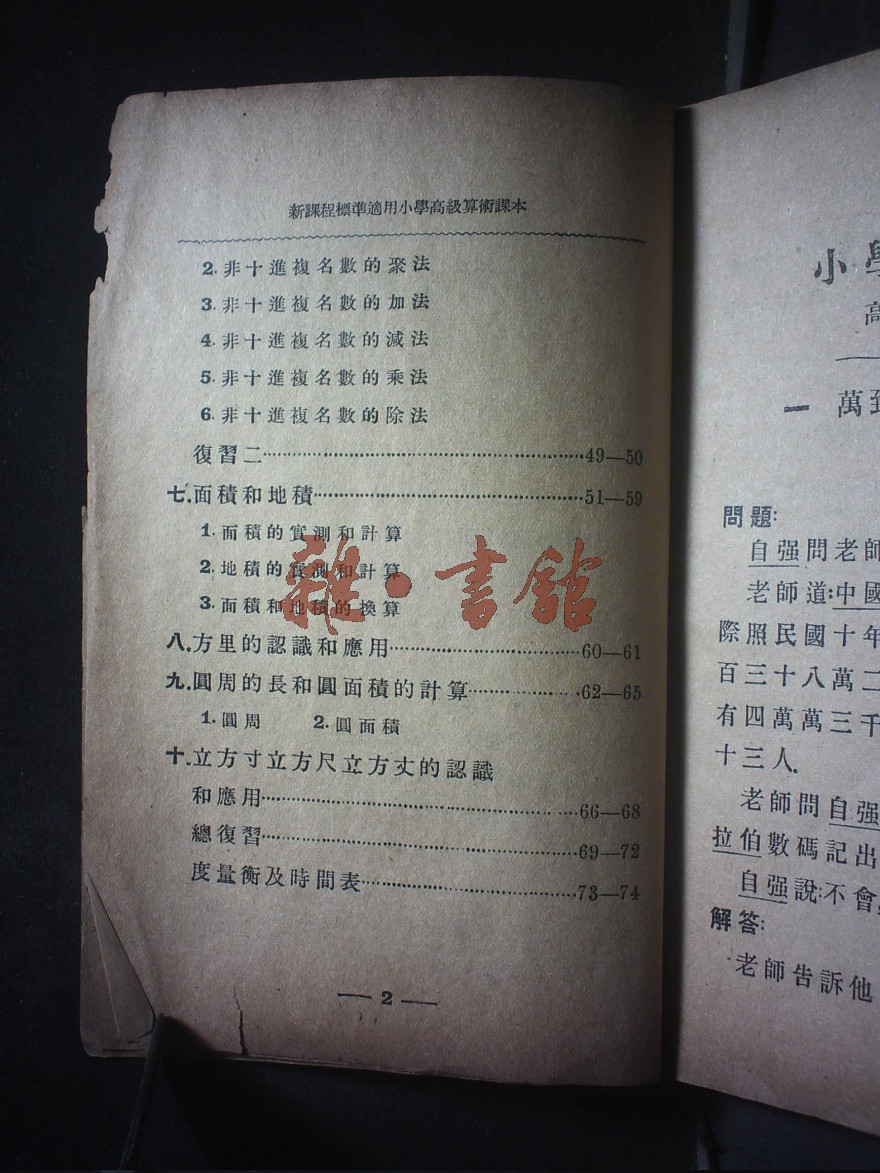 新課程標準適用小學高級算術課本
2. 非十進複名數的聚法
3. 非十進複名數的加法
4. 非十進複名數的減法
5. 非十進複名數的乘法
6. 非十進複名數的除法
復習二……49—50
七.面積和地積……51—59
1. 面積的實測和計算
2. 地積的實測和計算
3. 面積和地積的換算
八.方里的認識和應用……60—61
九.圓周的長和圓面積的計算……62—65
1. 圓周 2. 圓面積
十.立方寸立方尺立方丈的認識
和應用……66—68
總復習……69—72
度量衡及時間表……73—74
— 2 —
雜·書館
小學
高
一 萬到
問題:
自强問老師
老師道:中國
際照民國十年
百三十八萬二
有四萬萬三千
十三人.
老師問自强
拉伯數碼記出
自强說:不會,
解答:
老師告訴他